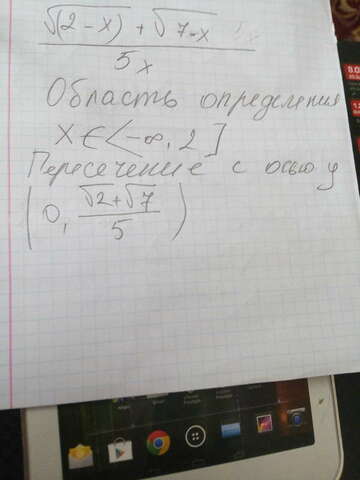 √(2-x) + √7-x
5x
Область определения
x ∈ (-∞, 2]
Пересечение с осью y
(0, √2+√7
5 )